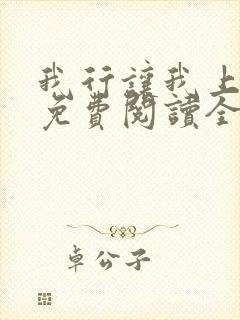 我行讓我上
免費閱讀全
卓公子